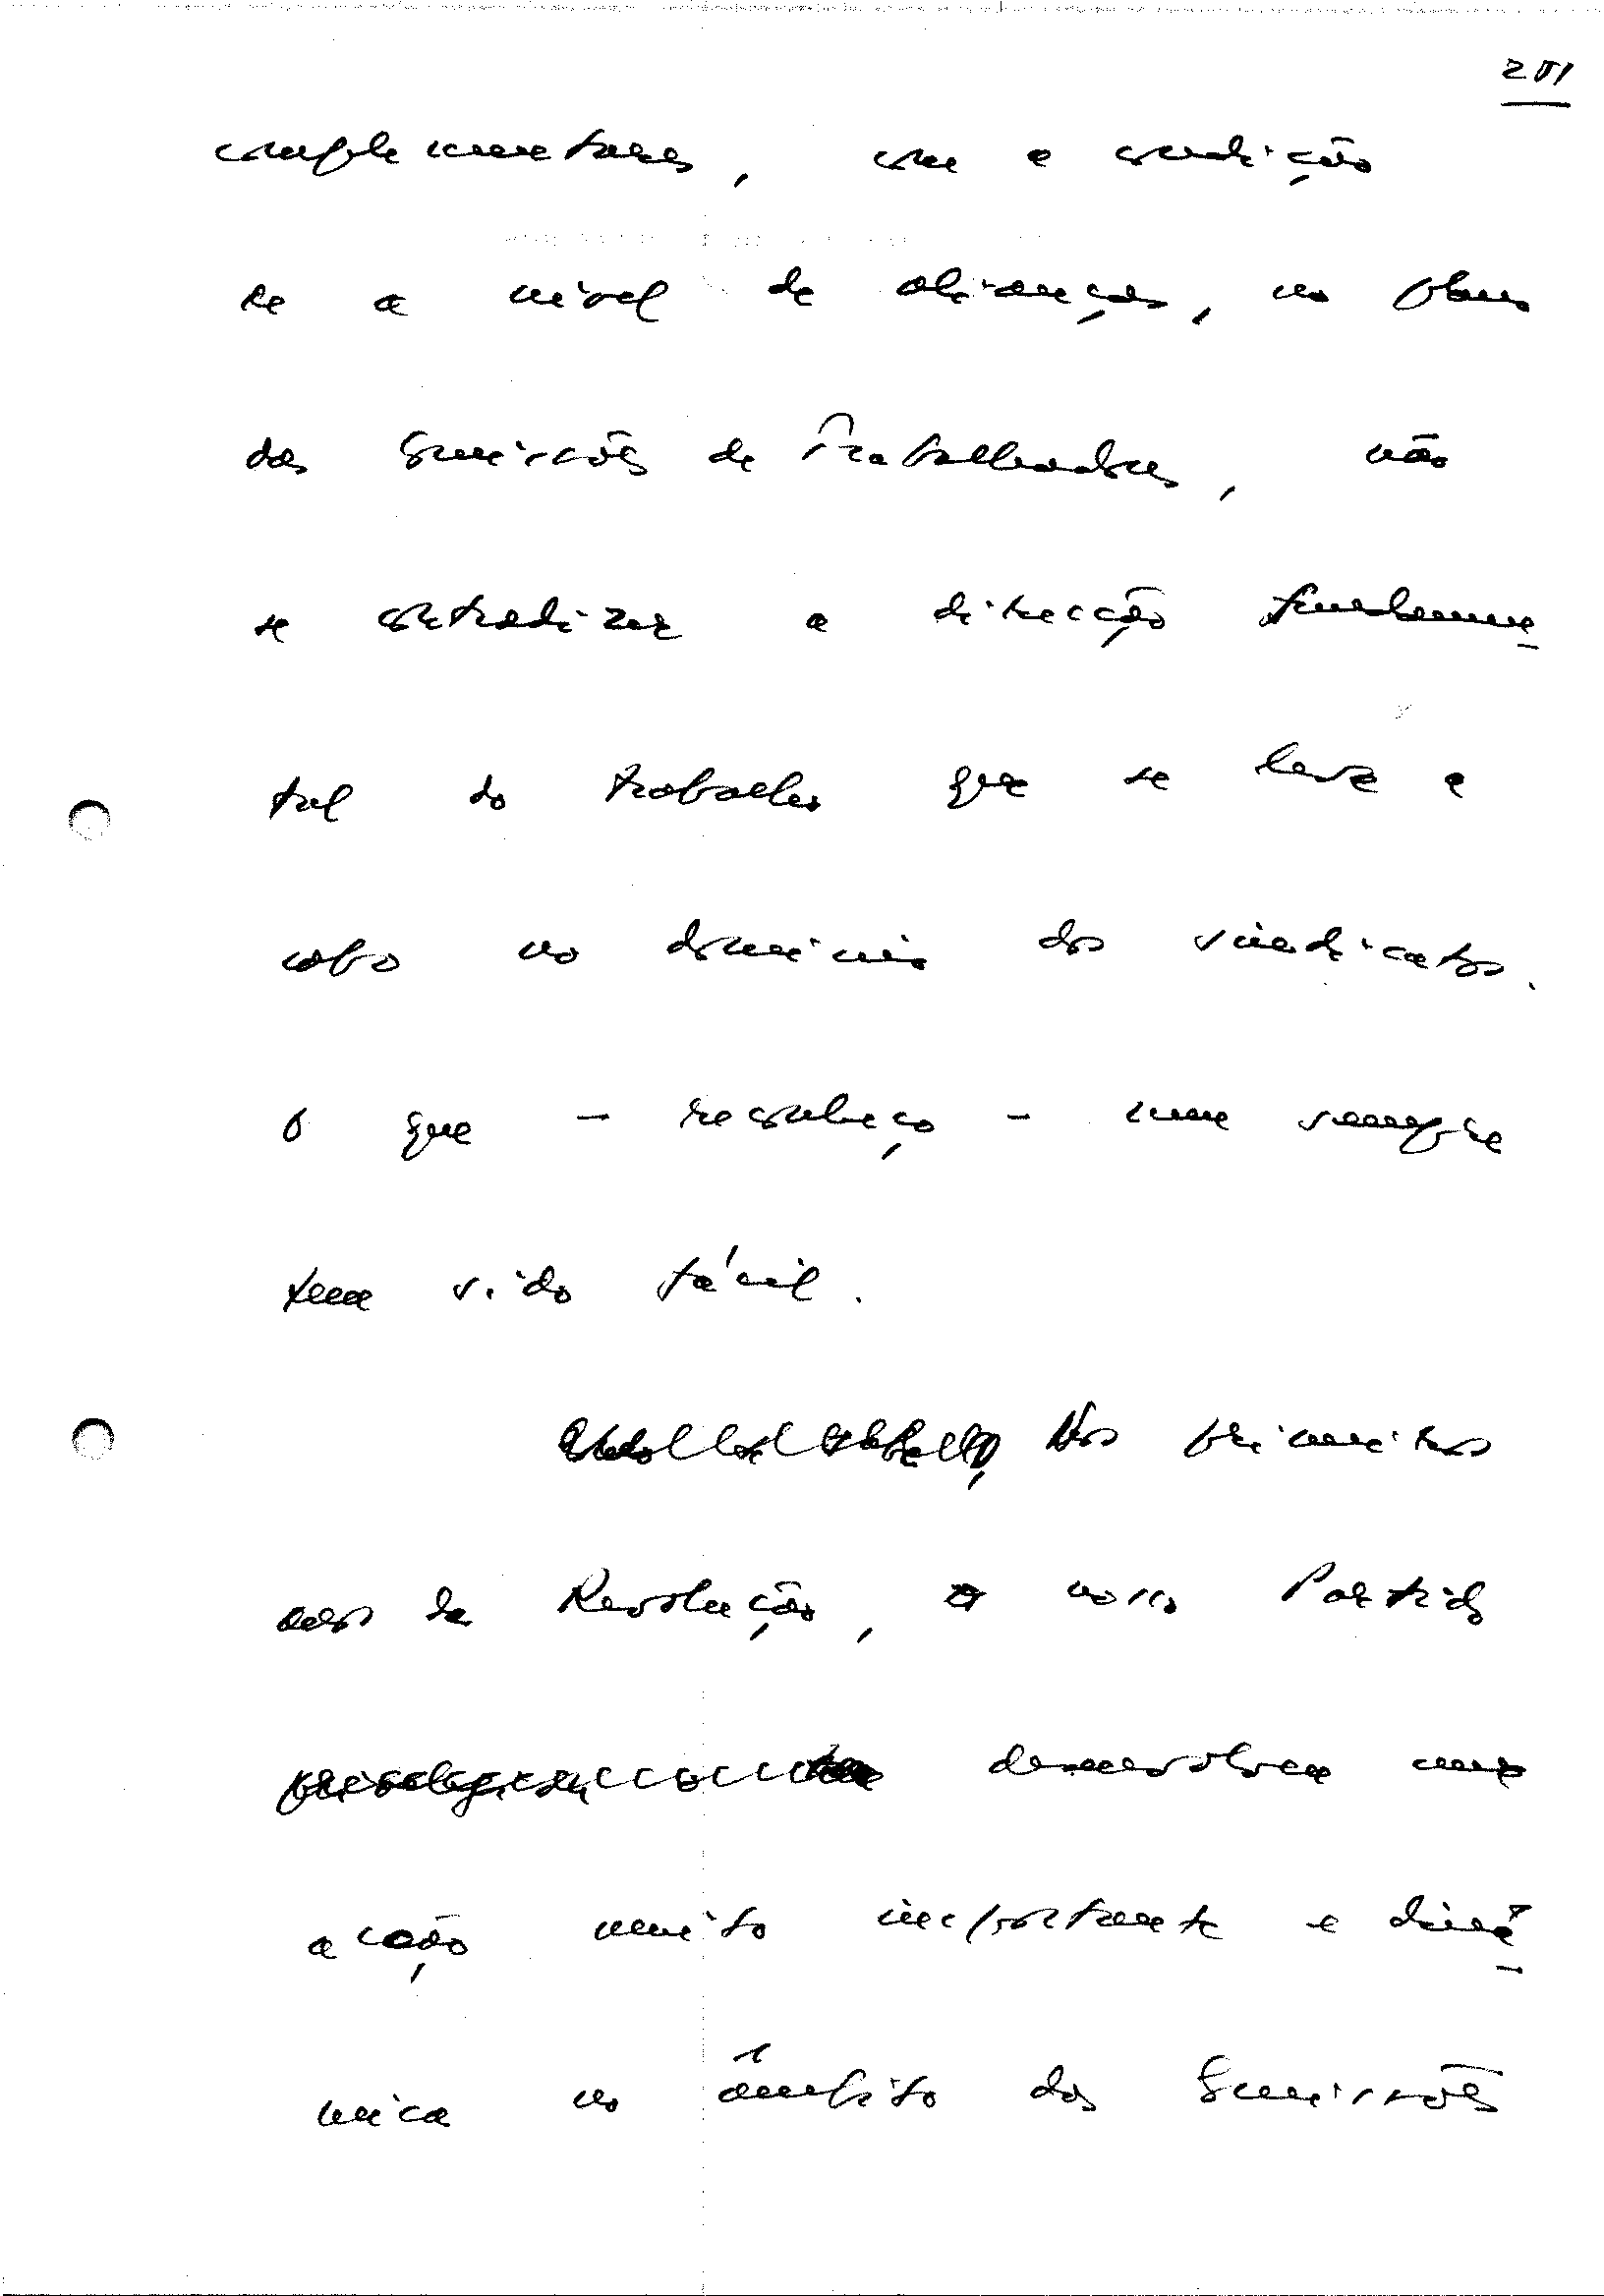 201
complementares, com a condição
de a nível de alianças, no plano
das Comissões de Trabalhadores, não
se contradizer a direcção fundamen
tal do trabalho que se leva a
cabo no domínio dos sindicatos.
O que - reconheço - nem sempre
tem sido fácil.
Nos primeiros
anos da Revolução, o nosso Partido
desenvolveu uma
acção muito importante e dinâ
mica no âmbito das Comissões